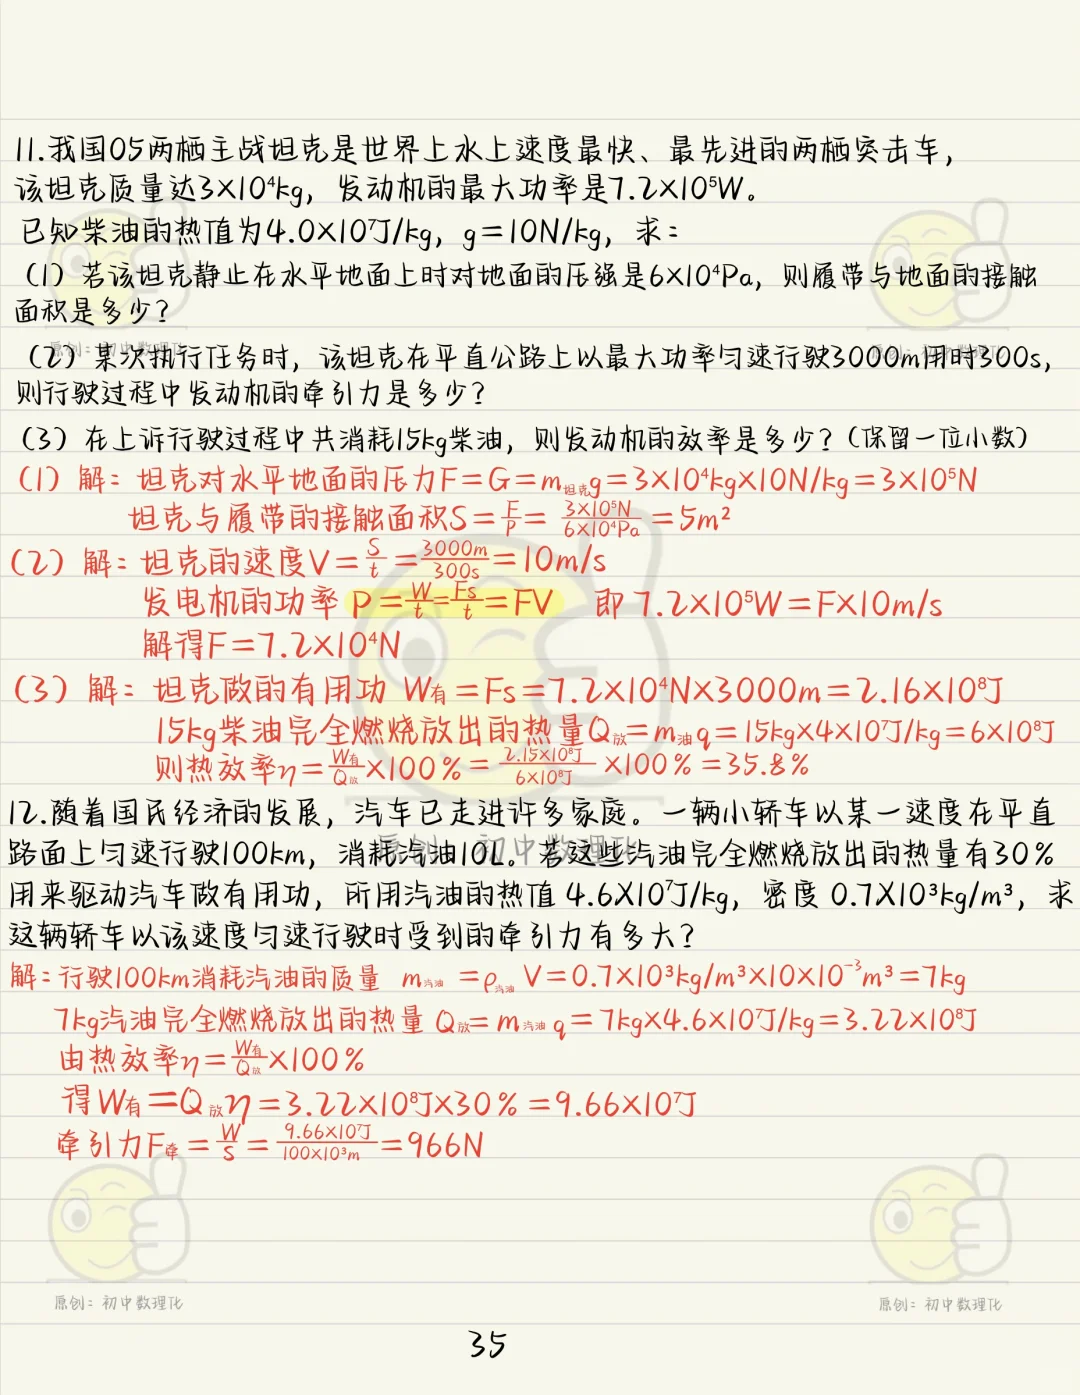 11.我国05两栖主战坦克是世界上水上速度最快、最先进的两栖突击车,
该坦克质量达3×10⁴kg, 发动机的最大功率是7.2×10⁵W。
已知柴油的热值为4.0×10⁷J/kg, g=10N/kg, 求:
(1) 若该坦克静止在水平地面上时对地面的压强是6×10⁴Pa, 则履带与地面的接触
面积是多少?
(2) 某次执行任务时, 该坦克在平直公路上以最大功率匀速行驶3000m用时300s,
则行驶过程中发动机的牵引力是多少?
(3) 在上诉行驶过程中共消耗15kg柴油, 则发动机的效率是多少?(保留一位小数)
(1) 解: 坦克对水平地面的压力F=G=m坦克g=3×10⁴kg×10N/kg=3×10⁵N
坦克与履带的接触面积S=F/P=3×10⁵N/6×10⁴Pa=5m²
(2) 解: 坦克的速度V=S/t=3000m/300s=10m/s
发电机的功率 P=W/t=Fs/t=FV 即 7.2×10⁵W=F×10m/s
解得F=7.2×10⁴N
(3) 解: 坦克做的有用功 W有=Fs=7.2×10⁴N×3000m=2.16×10⁸J
15kg柴油完全燃烧放出的热量Q放=m油q=15kg×4×10⁷J/kg=6×10⁸J
则热效率η=W有/Q放×100%=2.15×10⁸J/6×10⁸J×100%=35.8%
12.随着国民经济的发展, 汽车已走进许多家庭。一辆小轿车以某一速度在平直
路面上匀速行驶100km, 消耗汽油10L。若这些汽油完全燃烧放出的热量有30%
用来驱动汽车做有用功, 所用汽油的热值 4.6×10⁷J/kg, 密度 0.7×10³kg/m³, 求
这辆轿车以该速度匀速行驶时受到的牵引力有多大?
解: 行驶100km消耗汽油的质量 m汽油=ρ汽油V=0.7×10³kg/m³×10×10⁻³m³=7kg
7kg汽油完全燃烧放出的热量 Q放=m汽油q=7kg×4.6×10⁷J/kg=3.22×10⁸J
由热效率η=W有/Q放×100%
得W有=Q放η=3.22×10⁸J×30%=9.66×10⁷J
牵引力F牵=W/S=9.66×10⁷J/100×10³m=966N
原创: 初中数理化
原创: 初中数理化
原创: 初中数理化
原创: 初中数理化
原创: 初中数理化
35